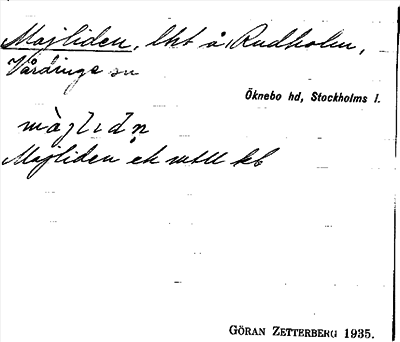 Majliden, lht å Rudholm,
Vårdinge sn
Öknebo hd, Stockholms l.
màjlıdn̥
Majliden ek
GÖRAN ZETTERBERG 1935.